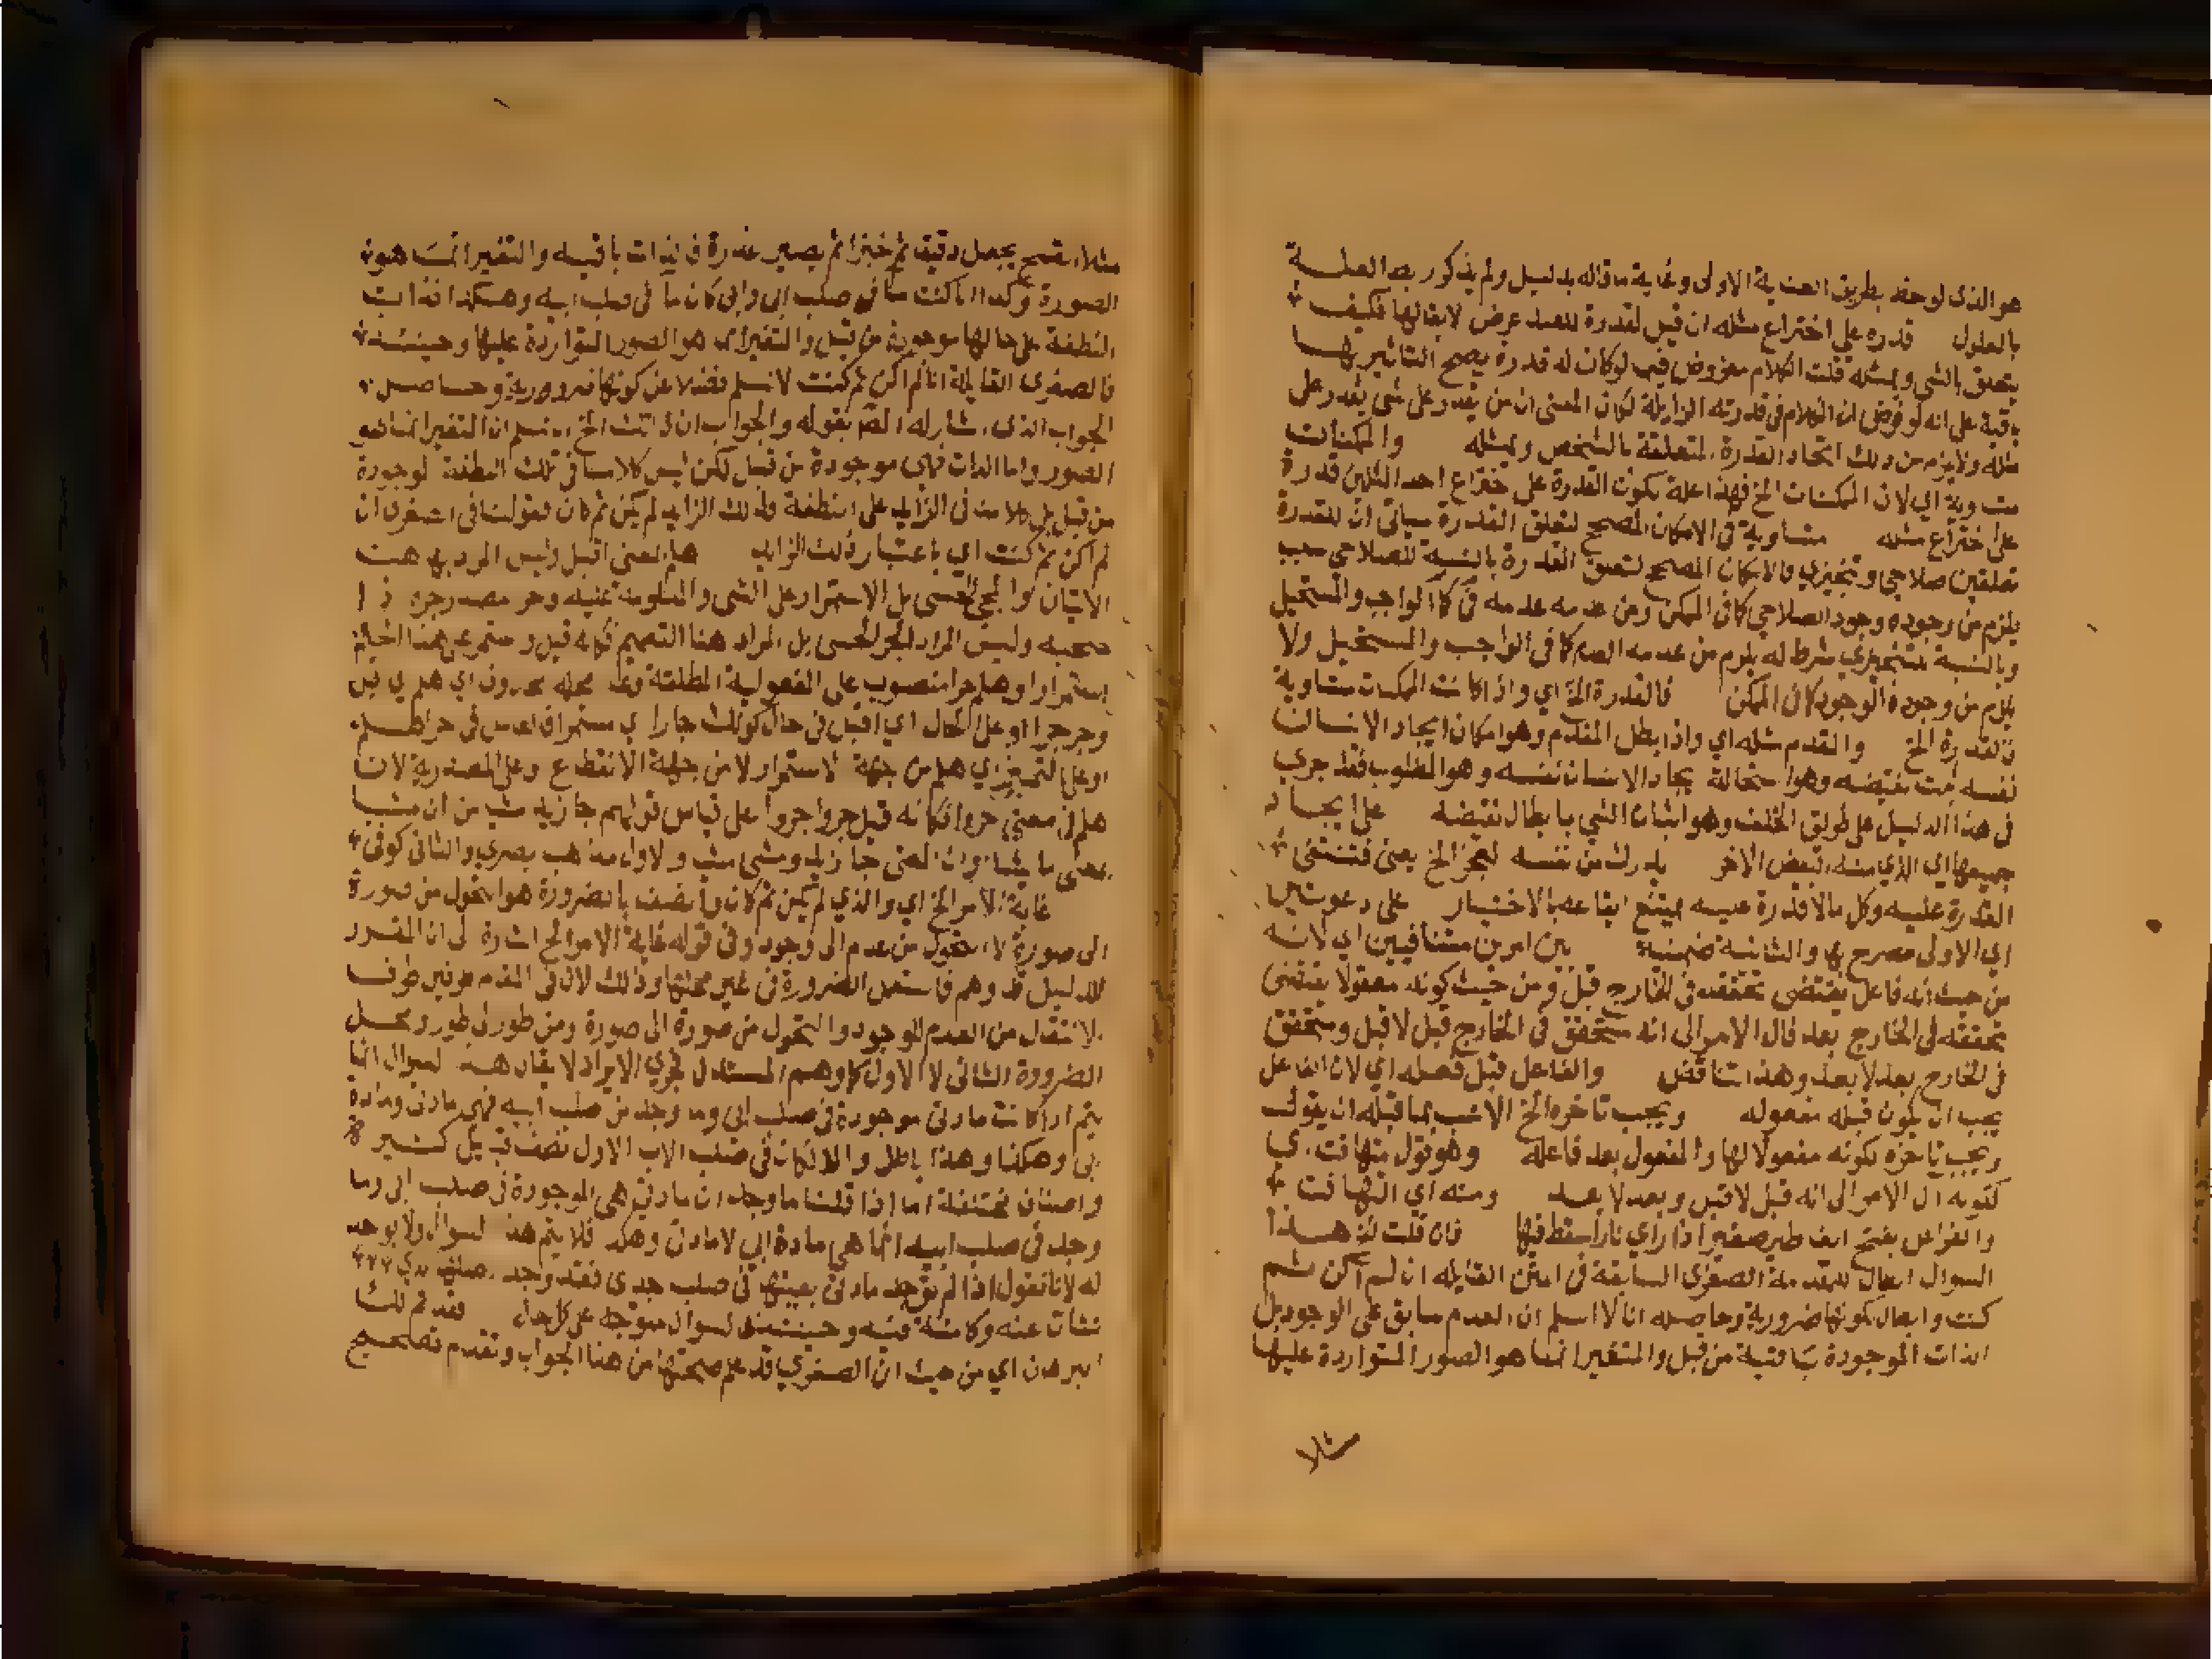 هو الذي لوحظ بطريق العناية الاولى وغاية ما قاله بدليل ولم يذكور بعد العلة
بالعلول قدره على اختراع مثله ان قيل القدرة للعبد عرض لا بقا لها فكيف
يتعلق بالشي وبمثله قلت الكلام مفروض فيما لو كان له قدرة يصح التاثير بها
باقية على انه لو فرض ان الكلام في قدرته الزايلة لكان المعنى ان من يقدر على شي يقدر على
مثله ولا يلزم من ذلك اتحاد القدرة المتعلقة بالشخص وبمثله والممكنات
متساوية اي لان الممكنات الخ فهذا علة لكون القدرة على اختراع احد المثلين قدرة
على اختراع مثله متساوية في الامكان المصحح لتعلق القدرة سياتي ان للقدرة
تعلقين صلاحي وتنجيزي والامكان المصحح لتعلق القدرة بالنسبة للصلاحي سبب
يلزم من وجوده وجود الصلاحي كما في الممكن ومن عدمه عدمه كما في الواجب والمستحيل
وبالنسبة للتنجيزي شرط له يلزم من عدمه العدم كما في الواجب والمستحيل ولا
يلزم من وجوده الوجود كما في الممكن فالقدرة الخ اي واذا كانت الممكنات متساوية
فالقدرة الخ والمقدم مثله اي واذا بطل المقدم وهو امكان ايجاد الانسان
نفسه ثبت نقيضه وهو استحالة ايجاد الانسان نفسه وهو المطلوب فقد جرى
في هذا الدليل على طريق الخلف وهو اثبات الشي بابطال نقيضه على ايجاد
جميعها اي الذي منه البعض الاخر يدرك من نفسه العجز الخ يعني فتنتفي
القدرة عليه وكل ما لا قدرة عليه يمتنع ايقاعه بالاختيار على دعوتين
اي الاولى مصرح بها والثانية ضمنية بين امرين متنافيين اي لانه
من حيث انه فاعل يقتضي تحققه في الخارج قبل ومن حيث كونه مفعولا يقتضي
تحققه في الخارج بعد فال الامر الى انه متحقق في الخارج قبل لا قبل ومتحقق
في الخارج بعد لا بعد وهذا تناقض والفاعل قبل فعله اي لان الفاعل
يجب ان يكون قبله مفعوله ويجب تاخره الخ الانسب بما قبله ان يقول
ويجب تاخره لكونه مفعولا لها والمفعول بعد فاعله وهو قول متهافت اي
لكونه ال الامر الى انه قبل لا قبل وبعد لا بعد ومنه اي التهافت
والفراش بفتح الفا طير صغير اذا راي نارا سقط فيها فان قلت الخ هذا
السوال ابطال للمقدمة الصغرى السابقة في المتن القايلة اني لم اكن ثم
كنت وابطال لكونها ضرورية وحاصله انا لا نسلم ان العدم سابق على الوجود بل
الذات الموجودة باقية من قبل والمتغير انما هو الصور المتواردة عليها
مثلا
مثلا القمح يجعل دقيقا ثم خبزا ثم يصير عذرة فالذات باقية والتغير انما هو في
الصورة وكذا انا كنت ما في صلب ابي وابي كان ما في صلب ابيه وهكذا فذات
النطفة على حالها موجودة من قبل والتغير انما هو الصور المتواردة عليها وحينئذ
فالصغرى القايلة انا لم اكن ثم كنت لا نسلم فضلا عن كونها ضرورية وحاصل
الجواب الذي اشار له المص بقوله والجواب ان ذاتك الخ انا نسلم ان التغير انما هو
الصور واما الذات فهي موجودة من قبل لكن ليس كلامنا في تلك النطفة الموجودة
من قبل بل كلامنا في الزايد على النطفة وذلك الزايد لم يكن ثم كان فقولنا في الصغرى اني
لم اكن ثم كنت اي باعتبار ذلك الزايد هلم بمعنى اقبل وليس المراد به هنا
الاتيان والمجي الحسي بل الاستمرار على الشي والمداومة عليه وجر مصدر جره اذا
سحبه وليس المراد الجر الحسي بل المراد هنا التعميم فكانه قيل واستمر على هذا الحكم
استمرارا وهلم جرا منصوب على المفعولية المطلقة وعامله محذوف اي هلم اي قبل
وجر جرا او على الحال اي اقبل في حال كونك جارا اي مستمرا
او على التمييز اي هلم من جهة الاستمرار لا من جهة الانقطاع وعلى المصدرية لان
هلم في معنى جروا فكانه قيل جروا جروا على قياس قولهم جا زيد مشيا من ان مشيا
بمعنى ماشيا وان المعنى جا زيد ومشى مشيا والاول مذهب بصري والثاني كوفي
غاية الامر الخ اي والذي لم يكن ثم كان بالضرورة هو التحول من صورة
الى صورة لا التحول من عدم الى وجود وفي قوله غاية الامر الخ اشارة الى ان المقرر
للدليل قد وهم فاستعمل الضرورة في غير محلها وذلك لان في المقدم موضعين طرفا
الانتقال من العدم للوجود والتحول من صورة الى صورة ومن طور الى طور ومحل
الضرورة الثاني لا الاول كما وهم المستدل فجرى الايراد لا يقال هذا السوال انما
يتم اذا كانت مادتي موجودة في صلب ابي وما وجد من صلب ابيه فهي مادتي ومادة
ابي وهكذا وهذا باطل والا لكان في صلب الاب الاول نصف قبايل كثير
واصناف مختلفة اما اذا قلنا ما وجد ان مادتي هي الموجودة في صلب ابي وما
وجد في صلب ابيه انما هي مادة ابي لا مادتي وهكذا فلا يتم هذا السوال ولا يوجد
له لانا نقول اذا لم توجد مادتي بعينها في صلب جدي فقد وجد
نشات عنه وكامنة فيه وحينئذ فالسوال متوجه على كل حال فقد تم لك
البرهان اي من حيث ان الصغرى قد علم صحتها من هذا الجواب وتقدم تصحيح